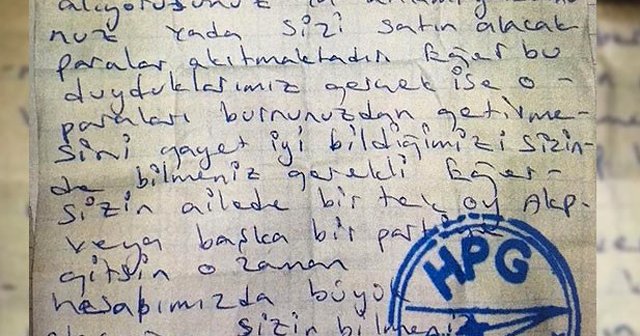 nuz yada sizi satın alacak
paralar akıtmaktadın Eğer bu
duyduklarımız gerçek ise o-
paraları burnunuzdan getirme-
sini gayet iyi bildiğimizi sizin-
de bilmeniz gerekli Eğer-
sizin ailede bir tek oy Akp-
veya başka bir partiye
gitsin o zaman
hesabımızda büyük
sizin bilmeniz
HPG